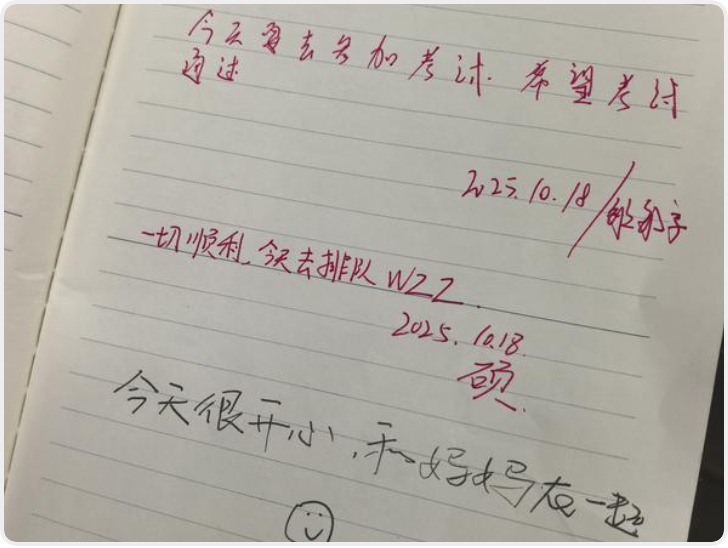 今天要去参加考试. 希望考试
通过
2025.10.18/
一切顺利, 今天去排队WZZ.
2025. 10.18.
硕.
今天很开心,和妈妈在一起